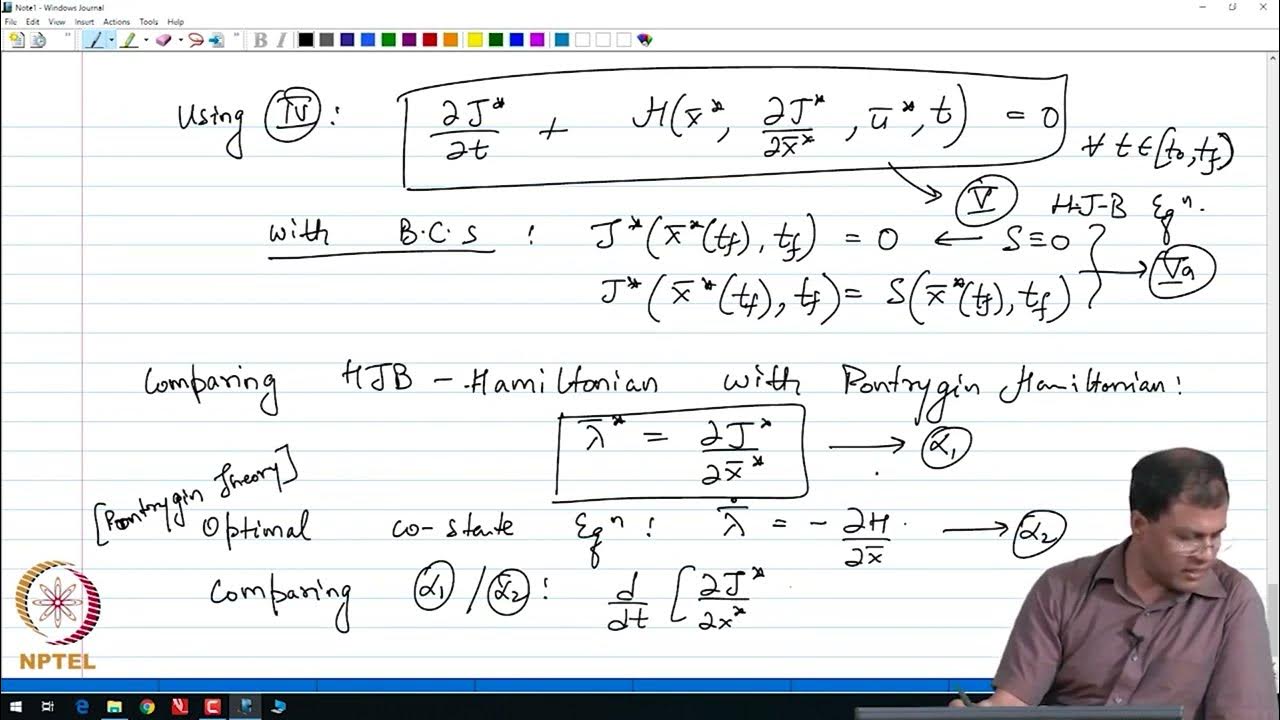 Note1 - Windows Journal
File Edit View Insert Actions Tools Help
Using (IV): ∂J*/∂t + H(x̄*, ∂J*/∂x̄*, ū*, t) = 0 ∀ t ∈ [t₀, t_f)
→ (V) H-J-B Eqⁿ.
with B.C.S : J*(x̄*(t_f), t_f) = 0 ← S ≡ 0
J*(x̄*(t_f), t_f) = S(x̄*(t_f), t_f) } → (Va)
Comparing HJB - Hamiltonian with Pontrygin Hamiltonian:
λ̄* = ∂J*/∂x̄* → (α₁)
[Pontrygin Theory]
Optimal co-state Eqⁿ: λ̄̇ = - ∂H/∂x̄ → (α₂)
Comparing (α₁) / (α₂) : d/dt [ ∂J*/∂x*
NPTEL